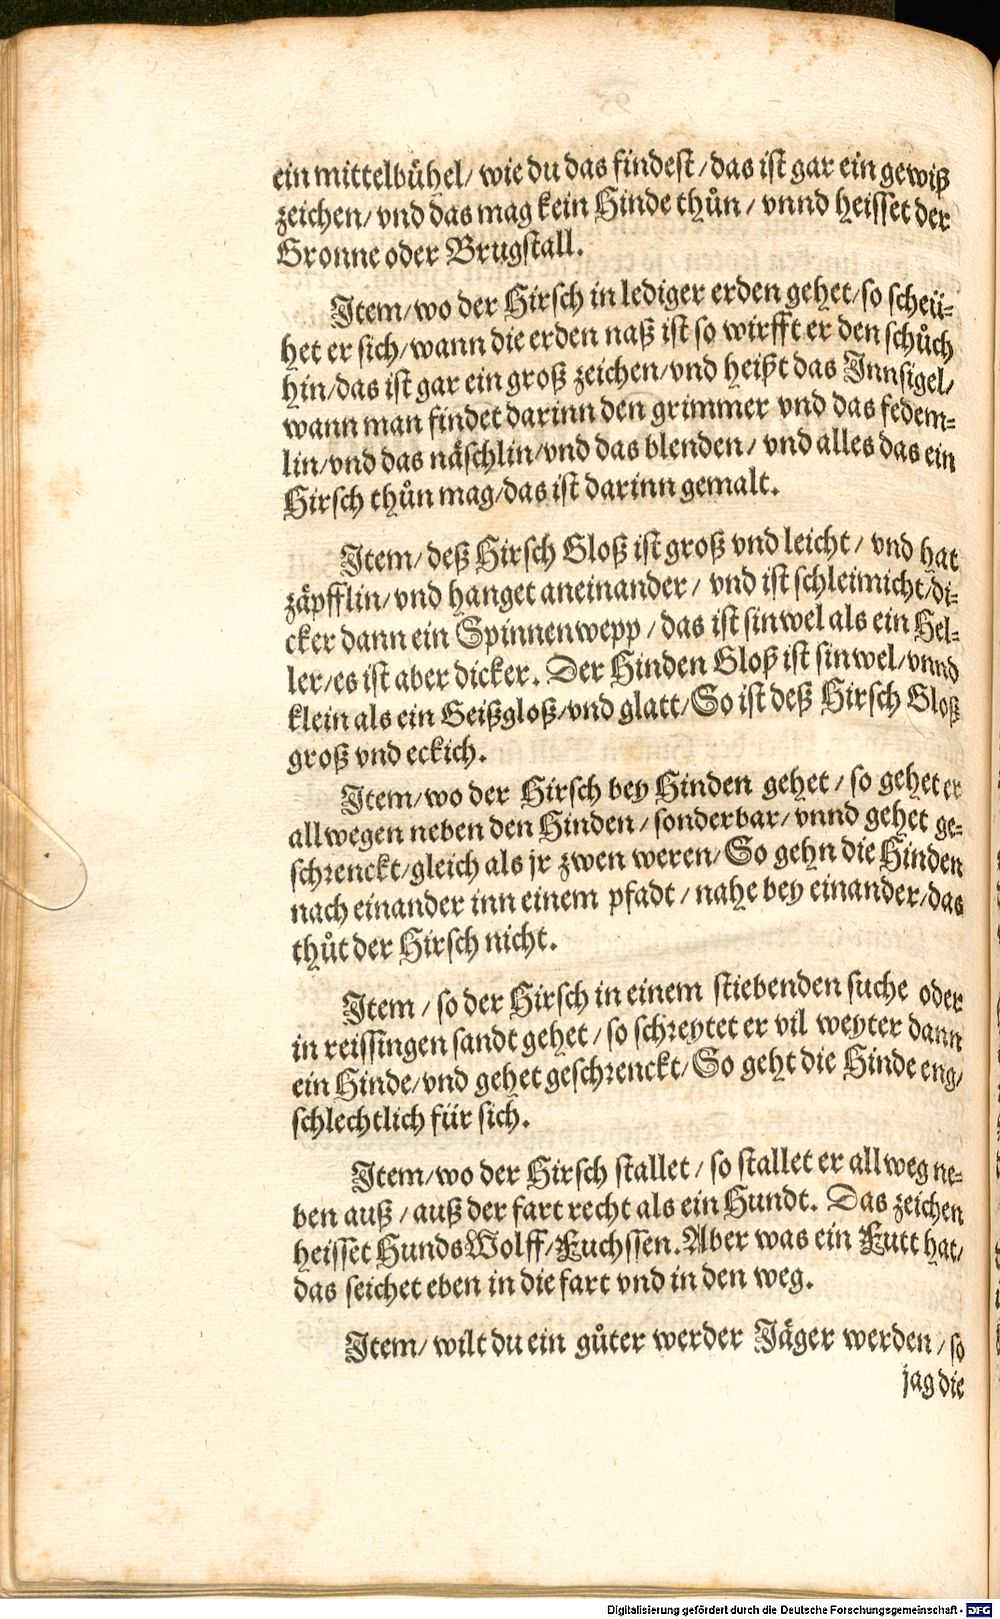 ein mittelbůhel/ wie du das findest/ das ist gar ein gewiß
zeichen/ vnd das mag kein Hinde thůn/ vnnd heisset der
Gronne oder Brugstall.
Item/ wo der Hirsch in lediger erden gehet/ so scheü-
het er sich/ wann die erden naß ist so wirfft er den schůch
hin/ das ist gar ein groß zeichen/ vnd heißt das Innsigel/
wann man findet darinn den grimmer vnd das fedem-
lin/ vnd das näschlin/ vnd das blenden/ vnd alles das ein
Hirsch thůn mag/ das ist darinn gemalt.
Item/ deß Hirsch Gloß ist groß vnd leicht/ vnd hat
zäpfflin/ vnd hanget aneinander/ vnd ist schleimicht/ di-
cker dann ein Spinnenwepp/ das ist sinwel als ein Hel-
ler/ es ist aber dicker. Der Hinden Gloß ist sinwel/ vnnd
klein als ein Geißgloß/ vnd glatt/ So ist deß Hirsch Gloß
groß vnd eckich.
Item/ wo der Hirsch bey Hinden gehet/ so gehet er
allwegen neben den Hinden/ sonderbar/ vnnd gehet ge-
schrenckt/ gleich als jr zwen weren/ So gehn die Hinden
nach einander inn einem pfadt/ nahe bey einander/ das
thůt der Hirsch nicht.
Item/ so der Hirsch in einem stiebenden suche oder
in reissingen sandt gehet/ so schreytet er vil weyter dann
ein Hinde/ vnd gehet geschrenckt/ So geht die Hinde eng/
schlechtlich für sich.
Item/ wo der Hirsch stallet/ so stallet er allweg ne-
ben auß/ auß der fart recht als ein Hundt. Das zeichen
heisset Hunds Wolff/ Fuchssen. Aber was ein Futt hat/
das seichet eben in die fart vnd in den weg.
Item/ wilt du ein gůter werder Jäger werden/ so
jag die
Digitalisierung gefördert durch die Deutsche Forschungsgemeinschaft - DFG